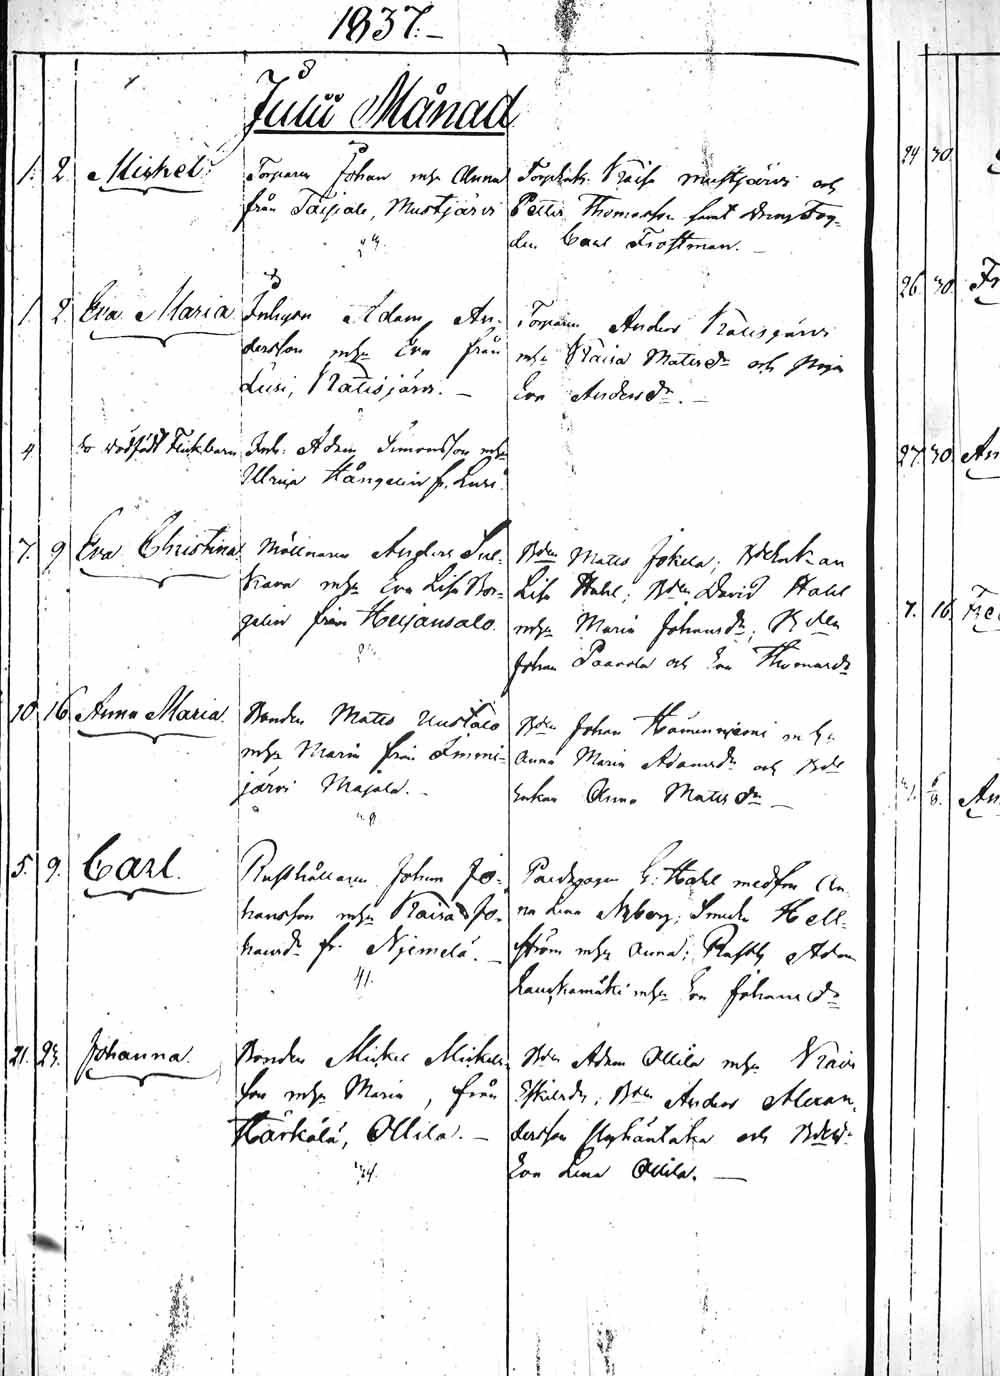 1837.
Julii Månad
1. 2. Mickel.
Torparen Johan m hu Anna
från Taipale, Mustjärvi
Torp Enk. Kaisa Mustjärvi och
Petter Thomasson samt
den Carl Trostman.
1. 2. Eva Maria
Inhysn Adam An-
dersson m hu Eva från
Lusi, Kattisjärvi.
Torparen Anders Kattisjärvi
m hu Kaisa Matts dr och Pigan
Eva Anders dr.
4 Et dödfödt flickbarn
Inh. Adam Simonsson m hu
Ulrica Hångelin fr. Lusi.
7. 9 Eva Christina
Möllnaren Anglert Sul-
kava m hu Eva Lisa Bor-
gelin från Heijansalo.
Bden Matts Jokela; Bde Enkan
Lisa Stahl; Bden David Stahl
m hu Maria Johans dr; Bden
Johan Paavola och Eva Thomas dr
10. 16 Anna Maria.
Bonden Matts Uustalo
m hu Maria från Immi-
järvi Majala.
Bden Johan Hämeenniemi m hu
Anna Maria Adams dr och Bde
Enkan Anna Matts dr
5. 9. Carl.
Rusthållaren Johan Jo-
hansson m hu Kaisa Jo-
hans dr fr. Niemelä.
41.
Paedagogen G: Stahl med fru An
na Lena Nyberg; Smeden Hell-
ström m hu Anna; Rusth Adam
Lauskamäki m hu Eva Johans dr
21. 23. Johanna.
Bonden Mickel Mickels-
son m hu Maria, från
Härkälä, Ollila.
Bden Adam Ollila m hu Kaisa
Eskils dr; Bden Anders Alexan-
dersson och Bde
Eva Lena Ollila.
24 30.
26. 30. Fr
27. 30. An
7. 16. Fre
An